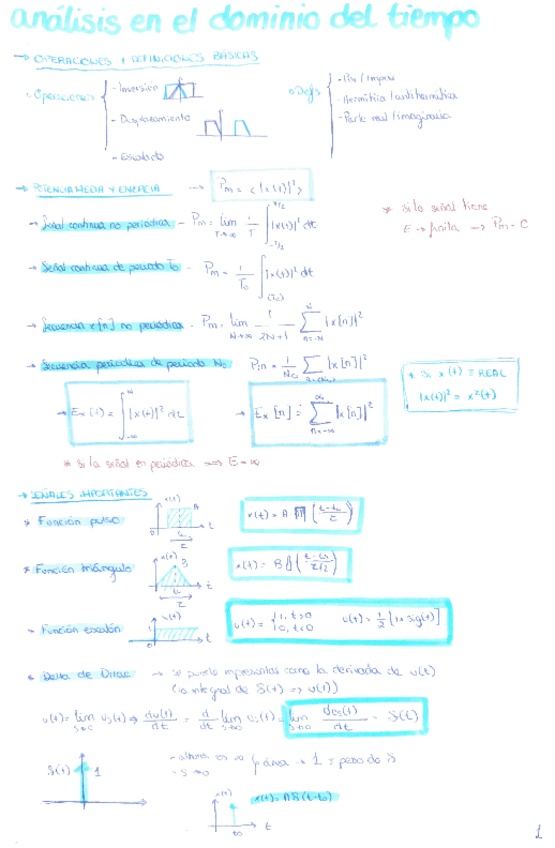 análisis en el dominio del tiempo
→ OPERACIONES Y DEFINICIONES BÁSICAS
• Operaciones { - Inversión
- Desplazamiento
- Escalado
• Defs { - Par / impar
- Hermítica / antihermítica
- Parte real / imaginaria
→ POTENCIA MEDIA Y ENERGÍA → Pm = <|x(t)|²>
→ Señal continua no periódica - Pm = lim T→∞ 1/T ∫_{-T/2}^{T/2} |x(t)|² dt
* si la señal tiene
E → finita ⟹ Pm = 0
→ Señal continua de periodo To - Pm = 1/To ∫_(To) |x(t)|² dt
→ Secuencia x[n] no periódica - Pm = lim N→∞ 1/2N+1 ∑_{n=-N}^{N} |x[n]|²
→ Secuencia periódica de periodo No Pm = 1/No ∑ |x[n]|²
* Si x(t) ≡ REAL
|x(t)|² = x²(t)
→ Ex(t) = ∫_{-∞}^{∞} |x(t)|² dt
→ Ex[n] = ∑_{n=-∞}^{∞} |x[n]|²
* si la señal es periódica ⟹ E = ∞
→ SEÑALES IMPORTANTES
* Función pulso x(t) A 0 t to τ x(t) = A Π((t-to)/τ)
* Función triángulo x(t) B t to τ x(t) = B
* Función escalón 1 u(t) 0 t u(t) = {1, t>0 0, t<0 u(t) = 1/2 [1+sig(t)]
* Delta de Dirac → se puede representar como la derivada de u(t)
(la integral de δ(t) ⟹ u(t))
du(t)/dt = d/dt lim = δ(t)
δ(t) 1
- altura es ∞ y área → 1 = peso de δ
x(t) to t x(t) = Aδ(t-to)
1